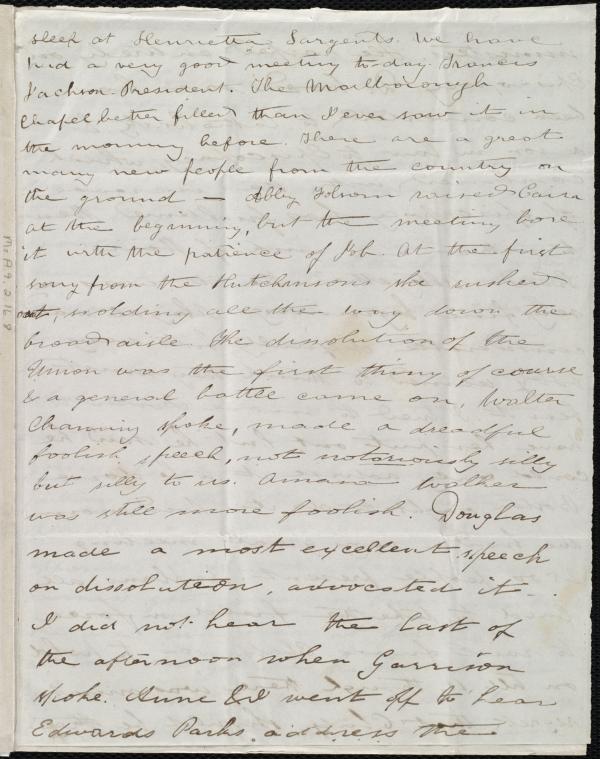 sleep at Henrietta Sargents. We have
had a very good meeting to-day. Francis
Jackson President. The Marlborough
Chapel better filled than I ever saw it in
the morning before. There are a great
many new people from the country on
the ground — Abby Folsom raised Cain
at the beginning, but the meeting bore
it with the patience of Job. At the first
song from the Hutchinsons she rushed
out, scolding all the way down the
broad aisle. The dissolution of the
Union was the first thing of course
& a general battle came on. Walter
Channing spoke, made a dreadful
foolish speech, not notoriously silly
but silly to us. Amasa Walker
was still more foolish. Douglas
made a most excellent speech
on dissolution, advocated it.
I did not hear the last of
the afternoon when Garrison
spoke. Anne & I went off to hear
Edwards Parks address the
Ms. A. 9. 2. 16. 8